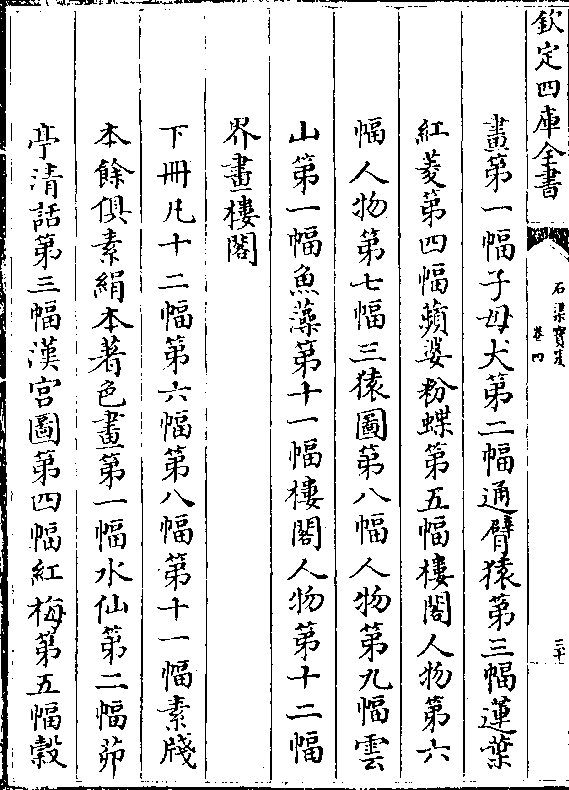 欽定四庫全書
石渠寶笈
卷四
三十
畫第一幅子母犬第二幅通臂猿第三幅蓮葉
紅菱第四幅蘋婆粉蝶第五幅樓閣人物第六
幅人物第七幅三猿圖第八幅人物第九幅雲
山第一幅魚藻第十一幅樓閣人物第十二幅
界畫樓閣
下冊凡十二幅第六幅第八幅第十一幅素牋
本餘俱素絹本著色畫第一幅水仙第二幅茆
亭清話第三幅漢宮圖第四幅紅梅第五幅穀